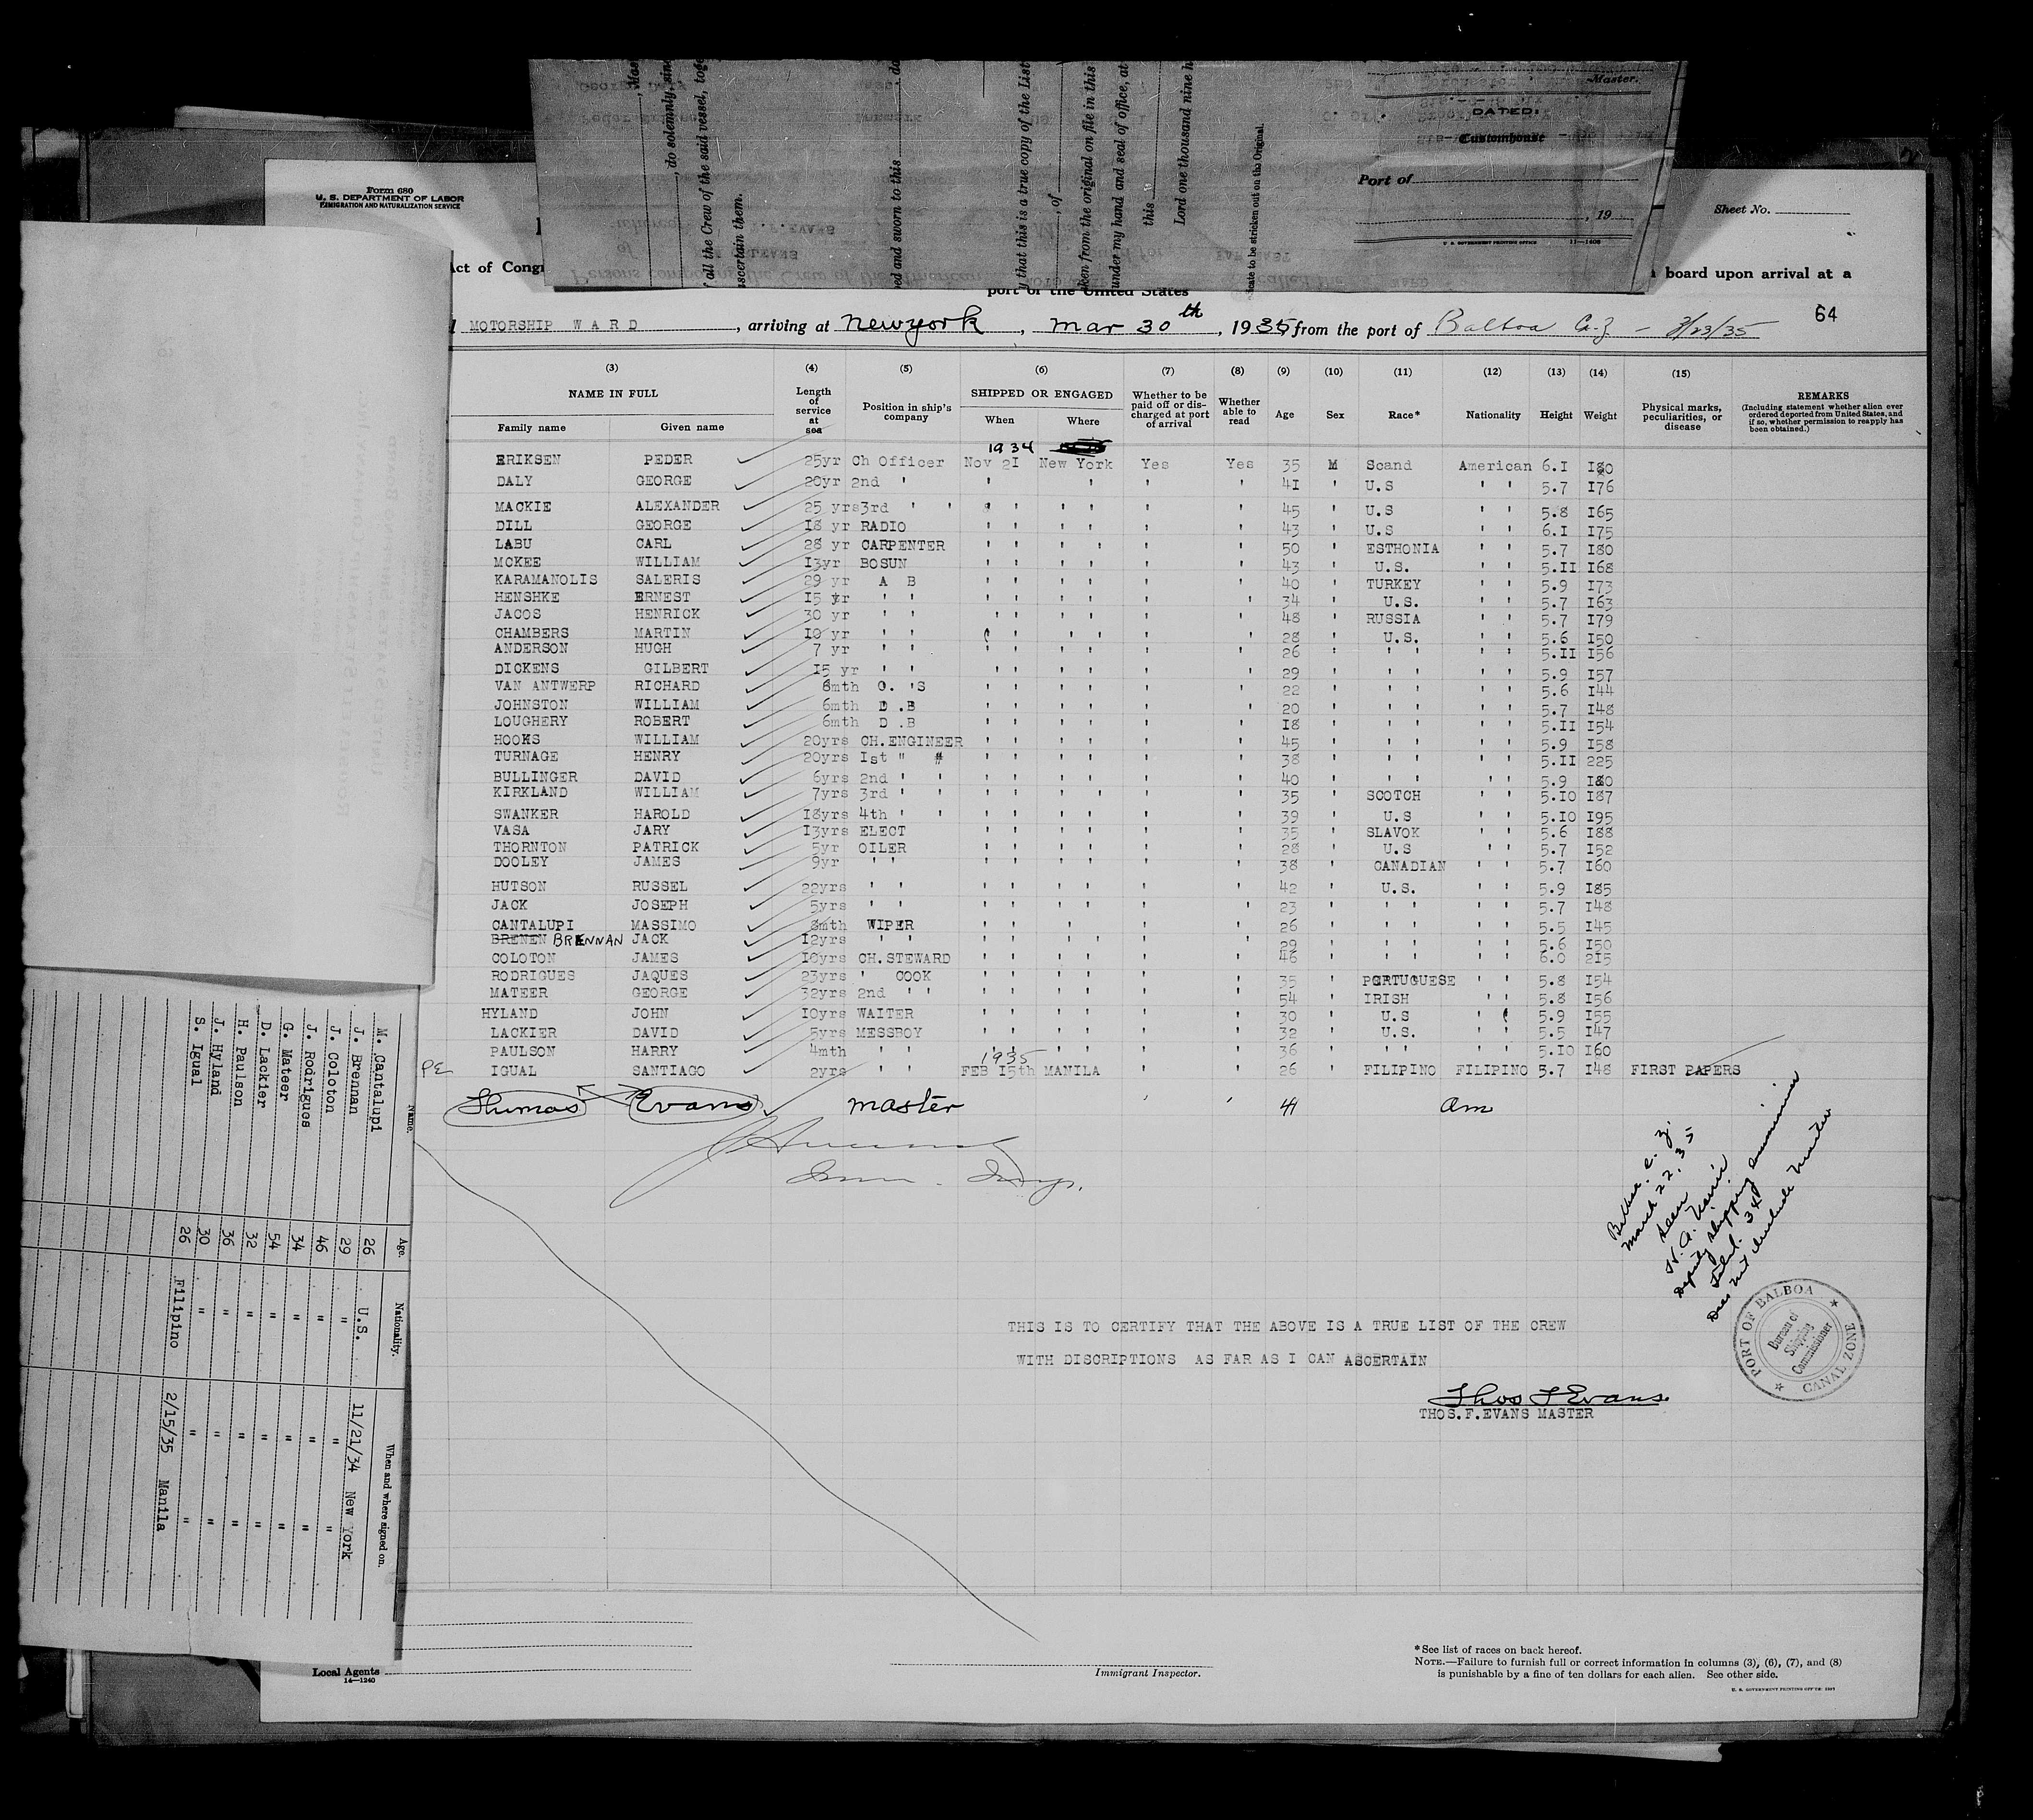 Form 680
U. S. DEPARTMENT OF LABOR
IMMIGRATION AND NATURALIZATION SERVICE
, do solemnly, sin
f all the Crew of the said vessel, toge
ascertain them.
bed and sworn to this
y that this is a true copy of the List
, of
ken from the original on file in this
under my hand and seal of office, at
this
Lord one thousand nine h
icate to be stricken out on the Original.
Master.
DATED:
Customhouse
Port of
, 19
U. S. GOVERNMENT PRINTING OFFICE 11—1406
Sheet No.
Act of Congr
n board upon arrival at a
port of the United States
64
MOTORSHIP W A R D , arriving at New york , Mar 30th , 1935 from the port of Balboa C.Z — 3/23/35
(3) (4) (5) (6) (7) (8) (9) (10) (11) (12) (13) (14) (15)
NAME IN FULL
Family name Given name
Length of service at sea
Position in ship's company
SHIPPED OR ENGAGED
When Where
Whether to be paid off or discharged at port of arrival
Whether able to read
Age Sex Race* Nationality Height Weight
Physical marks, peculiarities, or disease
REMARKS
(Including statement whether alien ever ordered deported from United States, and if so, whether permission to reapply has been obtained.)
1934
ERIKSEN PEDER 25yr Ch Officer Nov 2I New York Yes Yes 35 M Scand American 6.I I80
DALY GEORGE 20yr 2nd ' ' ' ' ' 4I ' U.S ' ' 5.7 I76
MACKIE ALEXANDER 25 yrs 3rd ' ' ' ' ' ' ' 45 ' U.S ' ' 5.8 I65
DILL GEORGE I8 yr RADIO ' ' ' ' ' ' 43 ' U.S ' ' 6.I I75
LABU CARL 28 yr CARPENTER ' ' ' ' ' ' 50 ' ESTHONIA ' ' 5.7 I80
MCKEE WILLIAM I3yr BOSUN ' ' ' ' ' ' 43 ' U.S. ' ' 5.II I68
KARAMANOLIS SALERIS 29 yr A B ' ' ' ' ' ' 40 ' TURKEY ' ' 5.9 I73
HENSHKE ERNEST I5 yr ' ' ' ' ' ' ' ' 34 ' U.S. ' ' 5.7 I63
JACOS HENRICK 30 yr ' ' ' ' ' ' ' ' 48 ' RUSSIA ' ' 5.7 I79
CHAMBERS MARTIN I0 yr ' ' ' ' ' ' ' ' 28 ' U.S. ' ' 5.6 I50
ANDERSON HUGH 7 yr ' ' ' ' ' ' ' ' 26 ' ' ' ' ' 5.II I56
DICKENS GILBERT I5 yr ' ' ' ' ' ' ' ' 29 ' ' ' ' ' 5.9 I57
VAN ANTWERP RICHARD 8mth O. 'S ' ' ' ' ' ' 22 ' ' ' ' ' 5.6 I44
JOHNSTON WILLIAM 6mth D .B ' ' ' ' ' ' 20 ' ' ' ' ' 5.7 I48
LOUGHERY ROBERT 6mth D .B ' ' ' ' ' ' I8 ' ' ' ' ' 5.II I54
HOOKS WILLIAM 20yrs CH.ENGINEER ' ' ' ' ' ' 45 ' ' ' ' ' 5.9 I58
TURNAGE HENRY 20yrs Ist " # ' ' ' ' ' ' 38 ' ' ' ' ' 5.II 225
BULLINGER DAVID 6yrs 2nd ' ' ' ' ' ' ' ' 40 ' ' ' ' ' 5.9 I80
KIRKLAND WILLIAM 7yrs 3rd ' ' ' ' ' ' ' ' 35 ' SCOTCH ' ' 5.I0 I87
SWANKER HAROLD I8yrs 4th ' ' ' ' ' ' ' ' 39 ' U.S ' ' 5.I0 I95
VASA JARY I3yrs ELECT ' ' ' ' ' ' 35 ' SLAVOK ' ' 5.6 I88
THORNTON PATRICK 5yr OILER ' ' ' ' ' ' 28 ' U.S ' ' 5.7 I52
DOOLEY JAMES 9yr ' ' ' ' ' ' ' ' 38 ' CANADIAN ' ' 5.7 I60
HUTSON RUSSEL 22yrs ' ' ' ' ' ' ' ' 42 ' U.S. ' ' 5.9 I85
JACK JOSEPH 5yrs ' ' ' ' ' ' ' ' 23 ' ' ' ' ' 5.7 I48
CANTALUPI MASSIMO 8mth WIPER ' ' ' ' ' 26 ' ' ' ' ' 5.5 I45
BRENEN BRENNAN JACK I2yrs ' ' ' ' ' ' ' ' 29 ' ' ' ' ' 5.6 I50
COLOTON JAMES I0yrs CH.STEWARD ' ' ' ' ' ' 46 ' ' ' ' ' 6.0 2I5
RODRIGUES JAQUES 23yrs ' COOK ' ' ' ' ' ' 35 ' PORTUGUESE ' ' 5.8 I54
MATEER GEORGE 32yrs 2nd ' ' ' ' ' ' ' ' 54 ' IRISH ' ' 5.8 I56
HYLAND JOHN I0yrs WAITER ' ' ' ' ' ' 30 ' U.S ' ' 5.9 I55
LACKIER DAVID 5yrs MESSBOY ' ' ' ' ' ' 32 ' U.S. ' ' 5.5 I47
PAULSON HARRY 4mth ' ' ' ' ' ' ' ' 36 ' ' ' ' ' 5.I0 I60
1935
PE IGUAL SANTIAGO 2yrs ' ' FEB I5th MANILA ' ' 26 ' FILIPINO FILIPINO 5.7 I48 FIRST PAPERS
Thomas Evans Master ' ' 41 Am
Imm. Insp.
Balboa. C. Z.
March 22, 35
Seen
Deputy Shipping Commissioner
Total. 34
Does not include Master
PORT OF BALBOA
CANAL ZONE
Bureau of
Shipping
Commissioner
THIS IS TO CERTIFY THAT THE ABOVE IS A TRUE LIST OF THE CREW
WITH DISCRIPTIONS AS FAR AS I CAN ASCERTAIN
Thos F Evans
THOS.F.EVANS MASTER
Name. Age. Nationality. When and where signed on.
M. Cantalupi 26 U.S. 11/21/34 New York
J. Brennan 29 " " "
J. Coloton 46 " " "
J. Rodrigues 34 " " "
G. Mateer 54 " " "
D. Lackier 32 " " "
H. Paulson 36 " " "
J. Hyland 30 " " "
S. Igual 26 Filipino 2/15/35 Manila
Local Agents
14—1240
Immigrant Inspector.
*See list of races on back hereof.
NOTE.—Failure to furnish full or correct information in columns (3), (6), (7), and (8)
is punishable by a fine of ten dollars for each alien. See other side.
U. S. GOVERNMENT PRINTING OFFICE: 1931